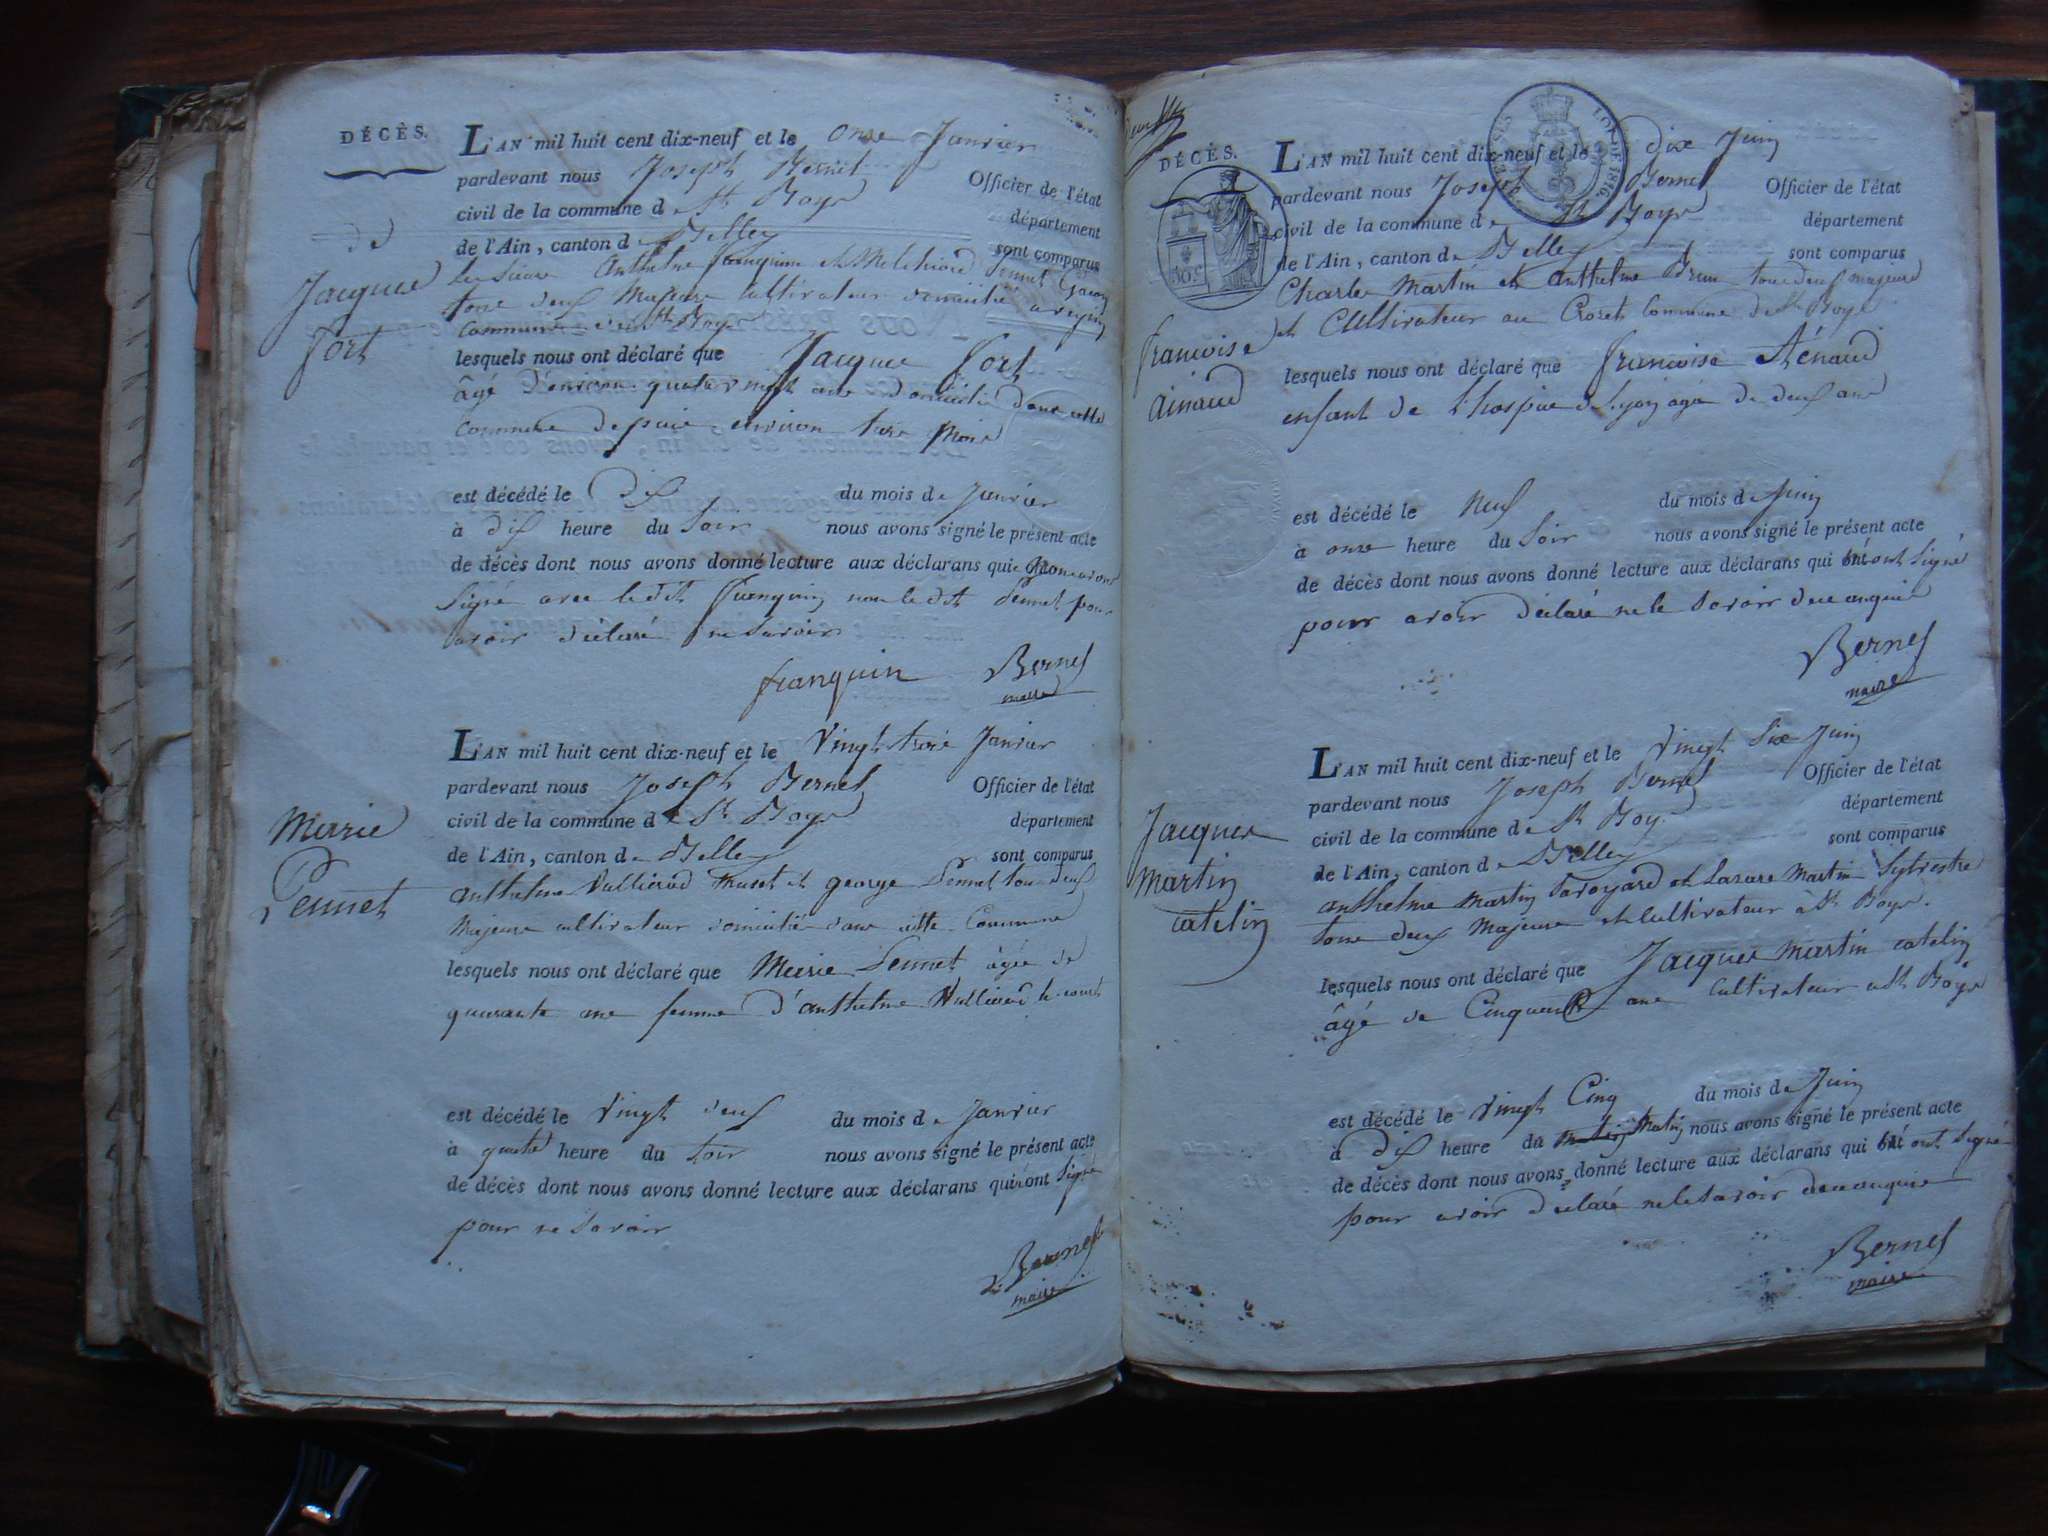 DÉCÈS.
de
Jacques
Fort
L'AN mil huit cent dix-neuf et le onse Janvier
pardevant nous Joseph Bernet Officier de l'état
civil de la commune de St Boys département
de l'Ain, canton de Belley sont comparus
les Sieurs Anthelme franquin et Melchiord Pennet
tous deux Majeurs Cultivateurs domicilié
Commune de St Boys
lesquels nous ont déclaré que Jacques Fort
âgé d'environ quatrevingt ans domicilié dans cette
Commune depuis environ trois Mois
est décédé le Dix du mois de Janvier
à dix heure du Soir nous avons signé le présent acte
de décès dont nous avons donné lecture aux déclarans qui
Signé avec le dit franquin non le dit Pennet pour
avoir déclaré ne Savoir
franquin Bernet
maire
Marie
Pennet
L'AN mil huit cent dix-neuf et le Vingt trois Janvier
pardevant nous Joseph Bernet Officier de l'état
civil de la commune de St Boys département
de l'Ain, canton de Belley sont comparus
anthelme Vullierod Muset et george Pennet tous deux
Majeurs cultivateurs domicilié dans cette Commune
lesquels nous ont déclaré que Marie Pennet âgée de
quarante ans femme d'anthelme Vullierod
est décédé le Vingt deux du mois de Janvier
à quatre heure du Soir nous avons signé le présent acte
de décès dont nous avons donné lecture aux déclarans qui n'ont Signé
pour ne Savoir
Bernet
maire
DÉCÈS.
50.c
LOI DE 1816.
francoise
ainaud
L'AN mil huit cent dix-neuf et le dix Juin
pardevant nous Joseph Bernet Officier de l'état
civil de la commune de St Boys département
de l'Ain, canton de Belley sont comparus
Charle Martin et anthelme Brun tous deux majeurs
et Cultivateur au Crozet Commune de St Boys
lesquels nous ont déclaré que francoise Aténaud
enfant de l'hospice de Lyon agée de deux ans
est décédé le Neuf du mois de Juin
à onse heure du Soir nous avons signé le présent acte
de décès dont nous avons donné lecture aux déclarans qui n'ont Signé
pour avoir déclaré ne le Savoir de ce enquis
Bernet
maire
Jacques
Martin
catelin
L'AN mil huit cent dix-neuf et le Vingt Six Juin
pardevant nous Joseph Bernet Officier de l'état
civil de la commune de St Boys département
de l'Ain, canton de Belley sont comparus
anthelme Martin Savoyard et Lazare Martin Sylvestre
tous deux Majeurs et Cultivateur à St Boys.
lesquels nous ont déclaré que Jacques Martin catelin
âgé de Cinquante ans Cultivateur a St Boys
est décédé le Vingt Cinq du mois de Juin
à dix heure du Matin nous avons signé le présent acte
de décès dont nous avons donné lecture aux déclarans qui n'ont Signé
pour avoir déclaré ne le Savoir de ce enquis
Bernet
maire